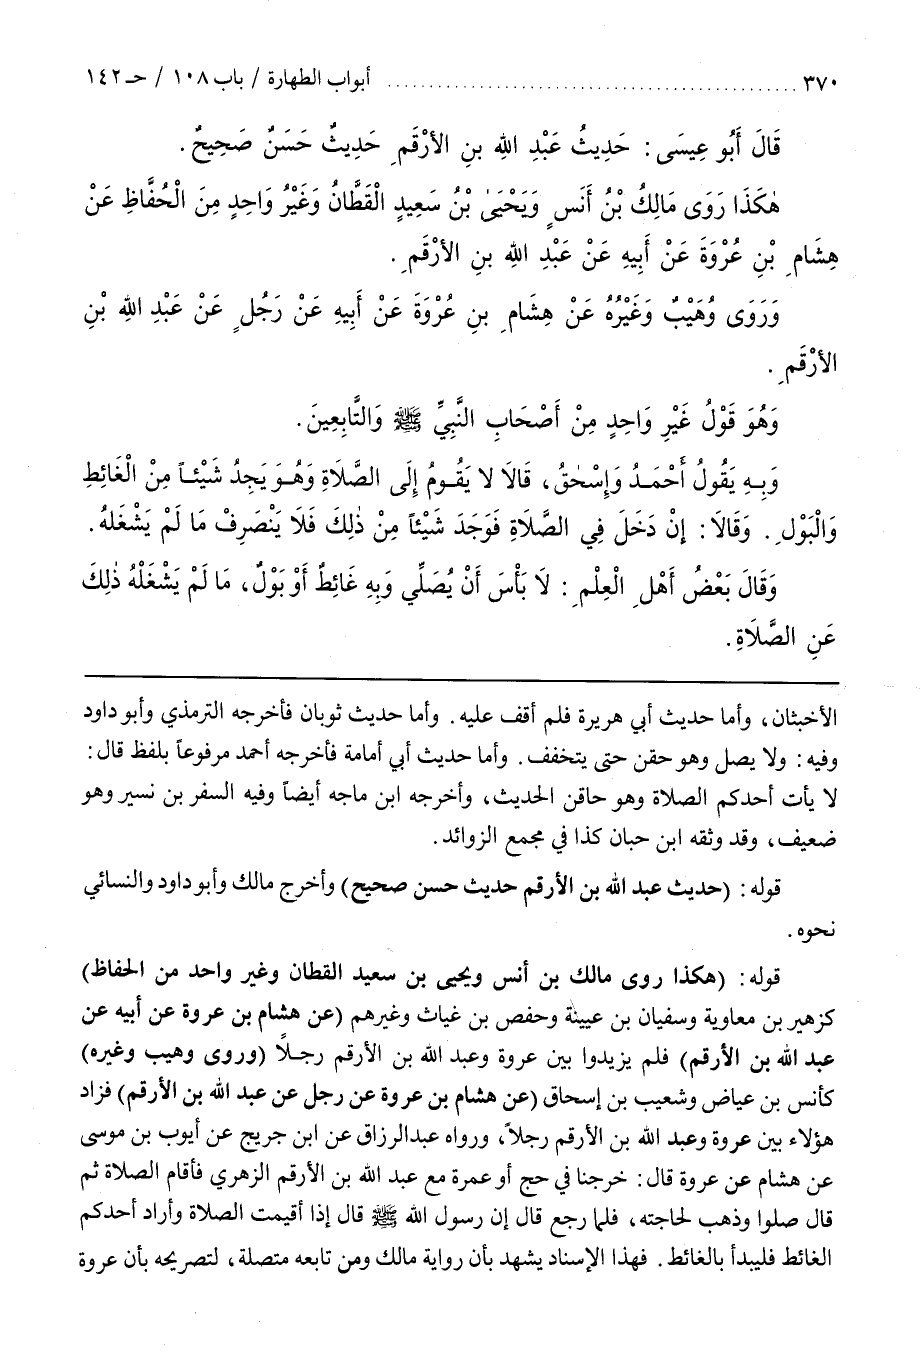 ٣٧٠ ........................................................ أبواب الطهارة / باب ١٠٨ / حـ ١٤٢
قَالَ أَبُو عِيسَى: حَدِيثُ عَبْدِ اللهِ بنِ الأَرْقَمِ حَدِيثٌ حَسَنٌ صَحِيحٌ.
هٰكَذَا رَوَى مَالِكُ بْنُ أَنَسٍ وَيَحْيَىٰ بْنُ سَعِيدٍ الْقَطَّانُ وَغَيْرُ وَاحِدٍ مِنَ الْحُفَّاظِ عَنْ
هِشَامِ بْنِ عُرْوَةَ عَنْ أَبِيهِ عَنْ عَبْدِ اللهِ بنِ الأَرْقَمِ.
وَرَوَى وُهَيْبٌ وَغَيْرُهُ عَنْ هِشَامِ بنِ عُرْوَةَ عَنْ أَبِيهِ عَنْ رَجُلٍ عَنْ عَبْدِ اللهِ بْنِ
الأَرْقَمِ.
وَهُوَ قَوْلُ غَيْرِ وَاحِدٍ مِنْ أَصْحَابِ النَّبِيِّ ﷺ وَالتَّابِعِينَ.
وَبِهِ يَقُولُ أَحْمَدُ وَإِسْحٰقُ، قَالَا لا يَقُومُ إِلَى الصَّلَاةِ وَهُوَ يَجِدُ شَيْئاً مِنْ الْغَائِطِ
وَالْبَوْلِ. وَقَالَا: إِنْ دَخَلَ فِي الصَّلَاةِ فَوَجَدَ شَيْئاً مِنْ ذٰلِكَ فَلَا يَنْصَرِفْ مَا لَمْ يَشْغَلهُ.
وَقَالَ بَعْضُ أَهْلِ الْعِلْمِ: لَا بَأْسَ أَنْ يُصَلِّي وَبِهِ غَائِطٌ أَوْ بَوْلٌ، مَا لَمْ يَشْغَلْهُ ذٰلِكَ
عَنِ الصَّلَاةِ.
الأخبثان، وأما حديث أبي هريرة فلم أقف عليه. وأما حديث ثوبان فأخرجه الترمذي وأبو داود
وفيه: ولا يصل وهو حقن حتى يتخفف. وأما حديث أبي أمامة فأخرجه أحمد مرفوعاً بلفظ قال:
لا يأت أحدكم الصلاة وهو حاقن الحديث، وأخرجه ابن ماجه أيضاً وفيه السفر بن نسير وهو
ضعيف، وقد وثقه ابن حبان كذا في مجمع الزوائد.
قوله: (حديث عبد الله بن الأرقم حديث حسن صحيح) وأخرج مالك وأبو داود والنسائي
نحوه.
قوله: (هكذا روى مالك بن أنس ويحيى بن سعيد القطان وغير واحد من الحفاظ)
كزهير بن معاوية وسفيان بن عيينة وحفص بن غياث وغيرهم (عن هشام بن عروة عن أبيه عن
عبد الله بن الأرقم) فلم يزيدوا بين عروة وعبد الله بن الأرقم رجلاً (وروى وهيب وغيره)
كأنس بن عياض وشعيب بن إسحاق (عن هشام بن عروة عن رجل عن عبد الله بن الأرقم) فزاد
هؤلاء بين عروة وعبد الله بن الأرقم رجلاً، ورواه عبدالرزاق عن ابن جريج عن أيوب بن موسى
عن هشام عن عروة قال: خرجنا في حج أو عمرة مع عبد الله بن الأرقم الزهري فأقام الصلاة ثم
قال صلوا وذهب لحاجته، فلما رجع قال إن رسول الله ﷺ قال إذا أقيمت الصلاة وأراد أحدكم
الغائط فليبدأ بالغائط. فهذا الإسناد يشهد بأن رواية مالك ومن تابعه متصلة، لتصريحه بأن عروة